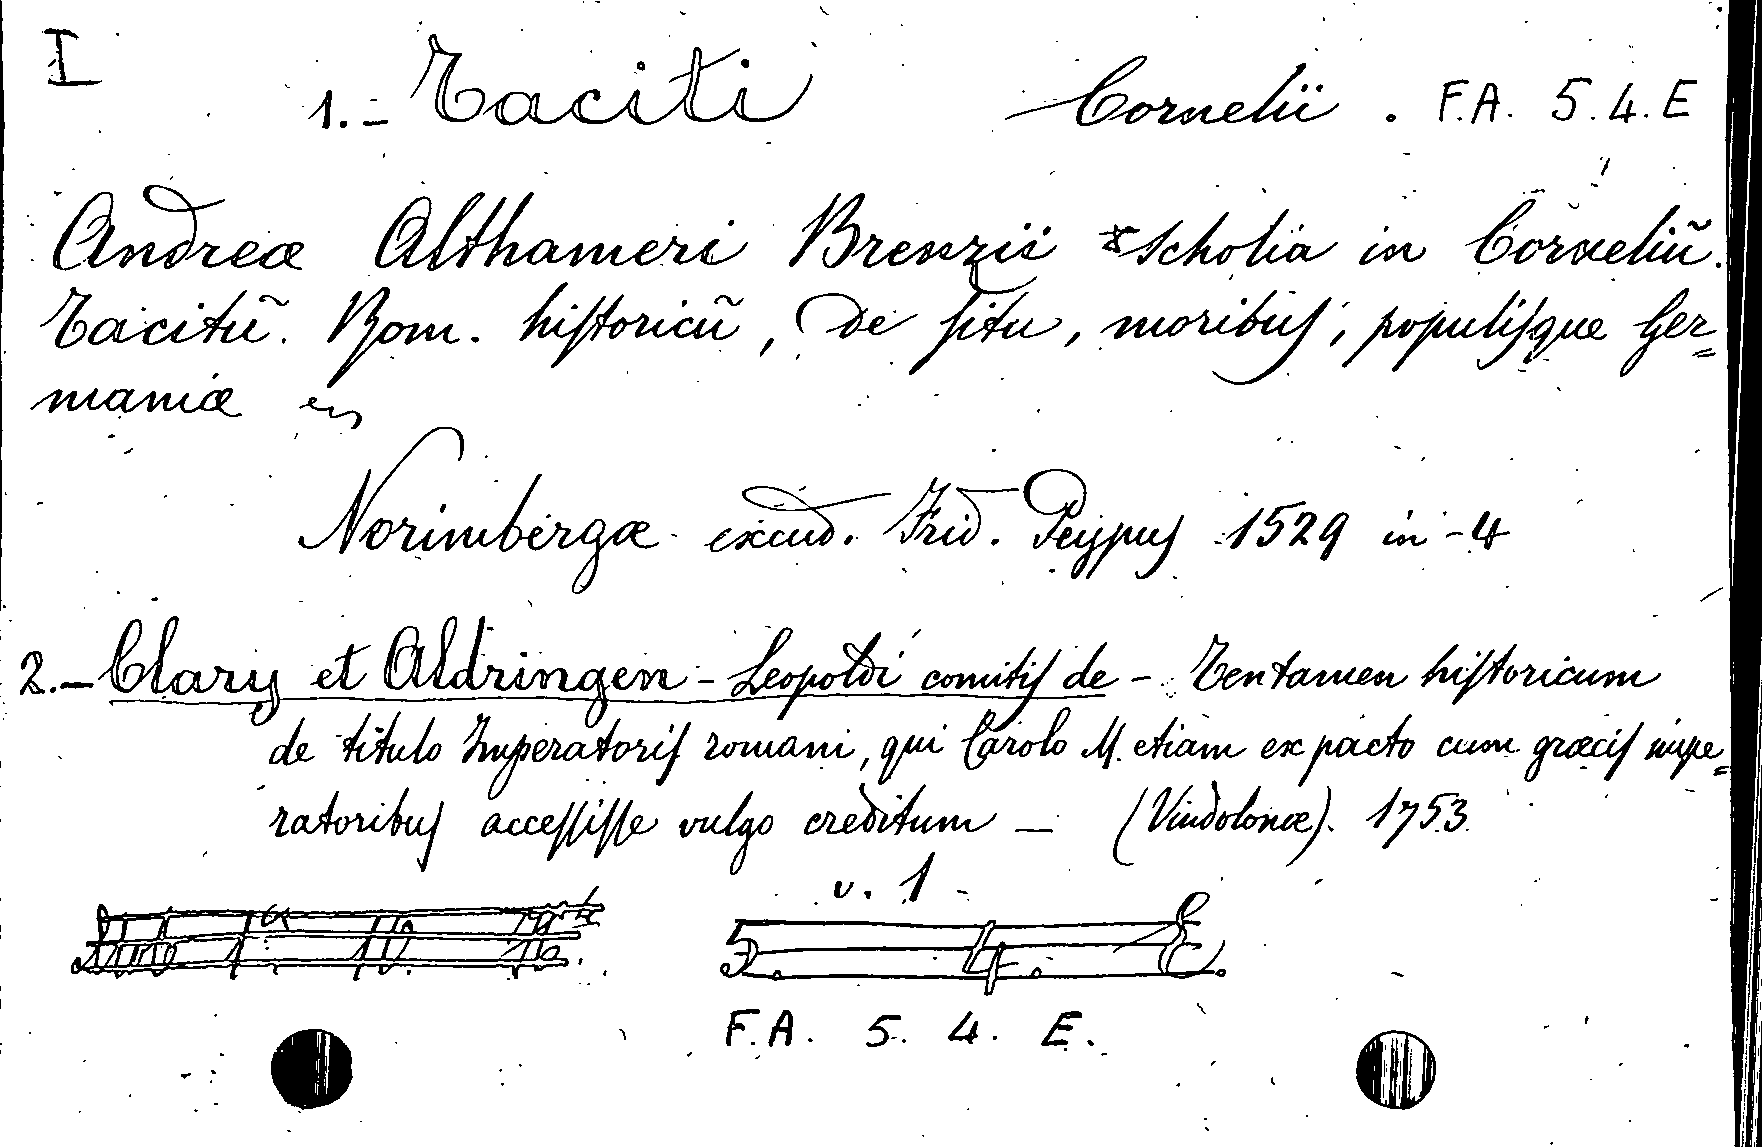 I
1.- Taciti Cornelii . F.A. 5.4.E
Andreæ Althameri Brenzii Scholia in Corneliũ.
Tacitũ. Rom. hiſtoricũ, De ſitu, moribuſ, populiſque Ger=
maniæ
Norimbergæ excud. Frid. Peypuſ 1529 in-4
2.- Clary et Aldringen - Leopoldi comitiſ de - Tentamen hiſtoricum
de titulo Imperatoriſ romani, qui Carolo M. etiam ex pacto cum græciſ impe=
ratoribuſ acceſſiſſe vulgo creditum — (Vindolonæ). 1753
v. 1
5. 4. E.
F.A. 5. 4. E.